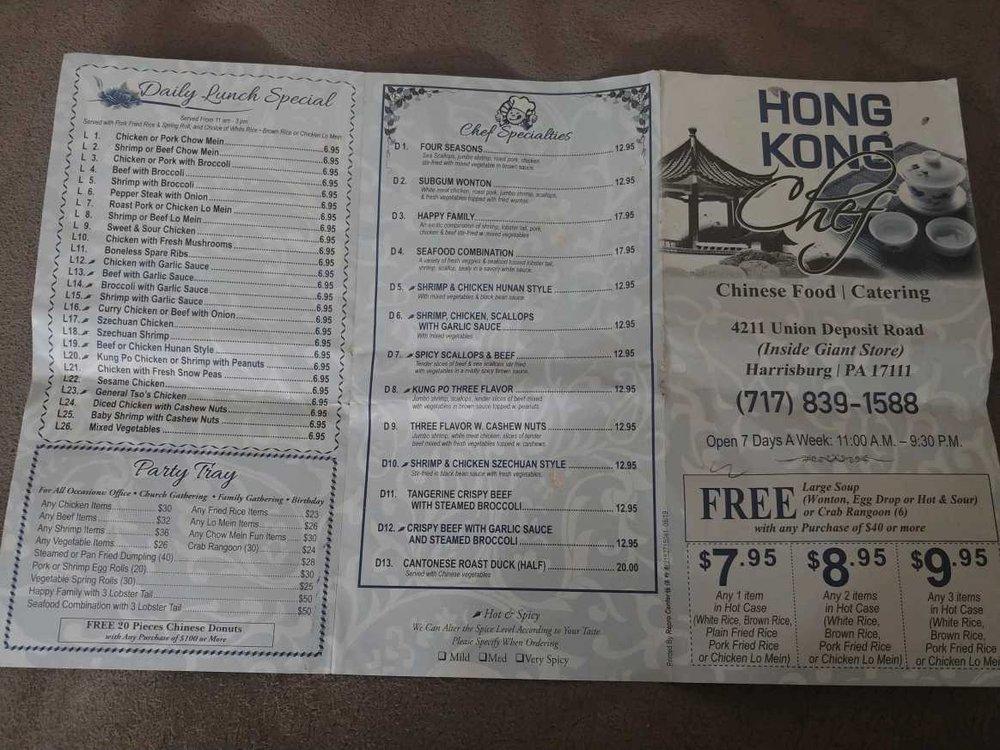 Daily Lunch Special
Served From 11 am - 3 pm
Served with Pork Fried Rice & Spring Roll, and Choice of White Rice • Brown Rice or Chicken Lo Mein
L 1. Chicken or Pork Chow Mein 6.95
L 2. Shrimp or Beef Chow Mein 6.95
L 3. Chicken or Pork with Broccoli 6.95
L 4. Beef with Broccoli 6.95
L 5. Shrimp with Broccoli 6.95
L 6. Pepper Steak with Onion 6.95
L 7. Roast Pork or Chicken Lo Mein 6.95
L 8. Shrimp or Beef Lo Mein 6.95
L 9. Sweet & Sour Chicken 6.95
L10. Chicken with Fresh Mushrooms 6.95
L11. Boneless Spare Ribs 6.95
L12. Chicken with Garlic Sauce 6.95
L13. Beef with Garlic Sauce 6.95
L14. Broccoli with Garlic Sauce 6.95
L15. Shrimp with Garlic Sauce 6.95
L16. Curry Chicken or Beef with Onion 6.95
L17. Szechuan Chicken 6.95
L18. Szechuan Shrimp 6.95
L19. Beef or Chicken Hunan Style 6.95
L20. Kung Po Chicken or Shrimp with Peanuts 6.95
L21. Chicken with Fresh Snow Peas 6.95
L22. Sesame Chicken 6.95
L23. General Tso's Chicken 6.95
L24. Diced Chicken with Cashew Nuts 6.95
L25. Baby Shrimp with Cashew Nuts 6.95
L26. Mixed Vegetables 6.95
Party Tray
For All Occasions: Office • Church Gathering • Family Gathering • Birthday
Any Chicken Items $30
Any Beef Items $32
Any Shrimp Items $36
Any Vegetable Items $26
Any Fried Rice Items $23
Any Lo Mein Items $26
Any Chow Mein Fun Items $30
Crab Rangoon (30) $24
Steamed or Pan Fried Dumpling (40) $28
Pork or Shrimp Egg Rolls (20) $30
Vegetable Spring Rolls (30) $25
Happy Family with 3 Lobster Tail $50
Seafood Combination with 3 Lobster Tail $50
FREE 20 Pieces Chinese Donuts
with Any Purchase of $100 or More
Chef Specialties
D 1. FOUR SEASONS 12.95
Sea Scallops, jumbo shrimp, roast pork, chicken
stir-fried with mixed vegetable in brown sauce.
D 2. SUBGUM WONTON 12.95
White meat chicken, roast pork, jumbo shrimp, scallops,
& fresh vegetables topped with fried wonton.
D 3. HAPPY FAMILY 17.95
An exotic combination of shrimp, lobster tail, pork,
chicken & beef stir-fried w. mixed vegetables
D 4. SEAFOOD COMBINATION 17.95
A variety of fresh veggies & seafood tossed lobster tail,
shrimp, scallop, sealy in a savory white sauce.
D 5. SHRIMP & CHICKEN HUNAN STYLE 12.95
With mixed vegetables & black bean sauce
D 6. SHRIMP, CHICKEN, SCALLOPS
WITH GARLIC SAUCE 12.95
With mixed vegetables
D 7. SPICY SCALLOPS & BEEF 12.95
Tender slices of beef & sea scallops stir fried
with vegetables in a mildly spicy brown sauce.
D 8. KUNG PO THREE FLAVOR 12.95
Jumbo shrimp, scallops, tender slices of beef mixed
with vegetables in brown sauce topped w. peanuts.
D 9. THREE FLAVOR W. CASHEW NUTS 12.95
Jumbo shrimp, white meat chicken, slices of tender
beef mixed with fresh vegetables topped w. cashews.
D10. SHRIMP & CHICKEN SZECHUAN STYLE 12.95
Stir-fried in black bean sauce with fresh vegetables.
D11. TANGERINE CRISPY BEEF
WITH STEAMED BROCCOLI 12.95
D12. CRISPY BEEF WITH GARLIC SAUCE
AND STEAMED BROCCOLI 12.95
D13. CANTONESE ROAST DUCK (HALF) 20.00
Served with Chinese vegetables
Hot & Spicy
We Can Alter the Spice Level According to Your Taste.
Please Specify When Ordering
Mild Med Very Spicy
HONG
KONG
Chef
Chinese Food | Catering
4211 Union Deposit Road
(Inside Giant Store)
Harrisburg | PA 17111
(717) 839-1588
Open 7 Days A Week: 11:00 A.M. – 9:30 P.M.
FREE
Large Soup
(Wonton, Egg Drop or Hot & Sour)
or Crab Rangoon (6)
with any Purchase of $40 or more
$7.95
Any 1 item
in Hot Case
(White Rice, Brown Rice,
Plain Fried Rice
Pork Fried Rice
or Chicken Lo Mein)
$8.95
Any 2 items
in Hot Case
(White Rice,
Brown Rice,
Pork Fried Rice
or Chicken Lo Mein)
$9.95
Any 3 items
in Hot Case
(White Rice,
Brown Rice,
Pork Fried Rice
or Chicken Lo Mei